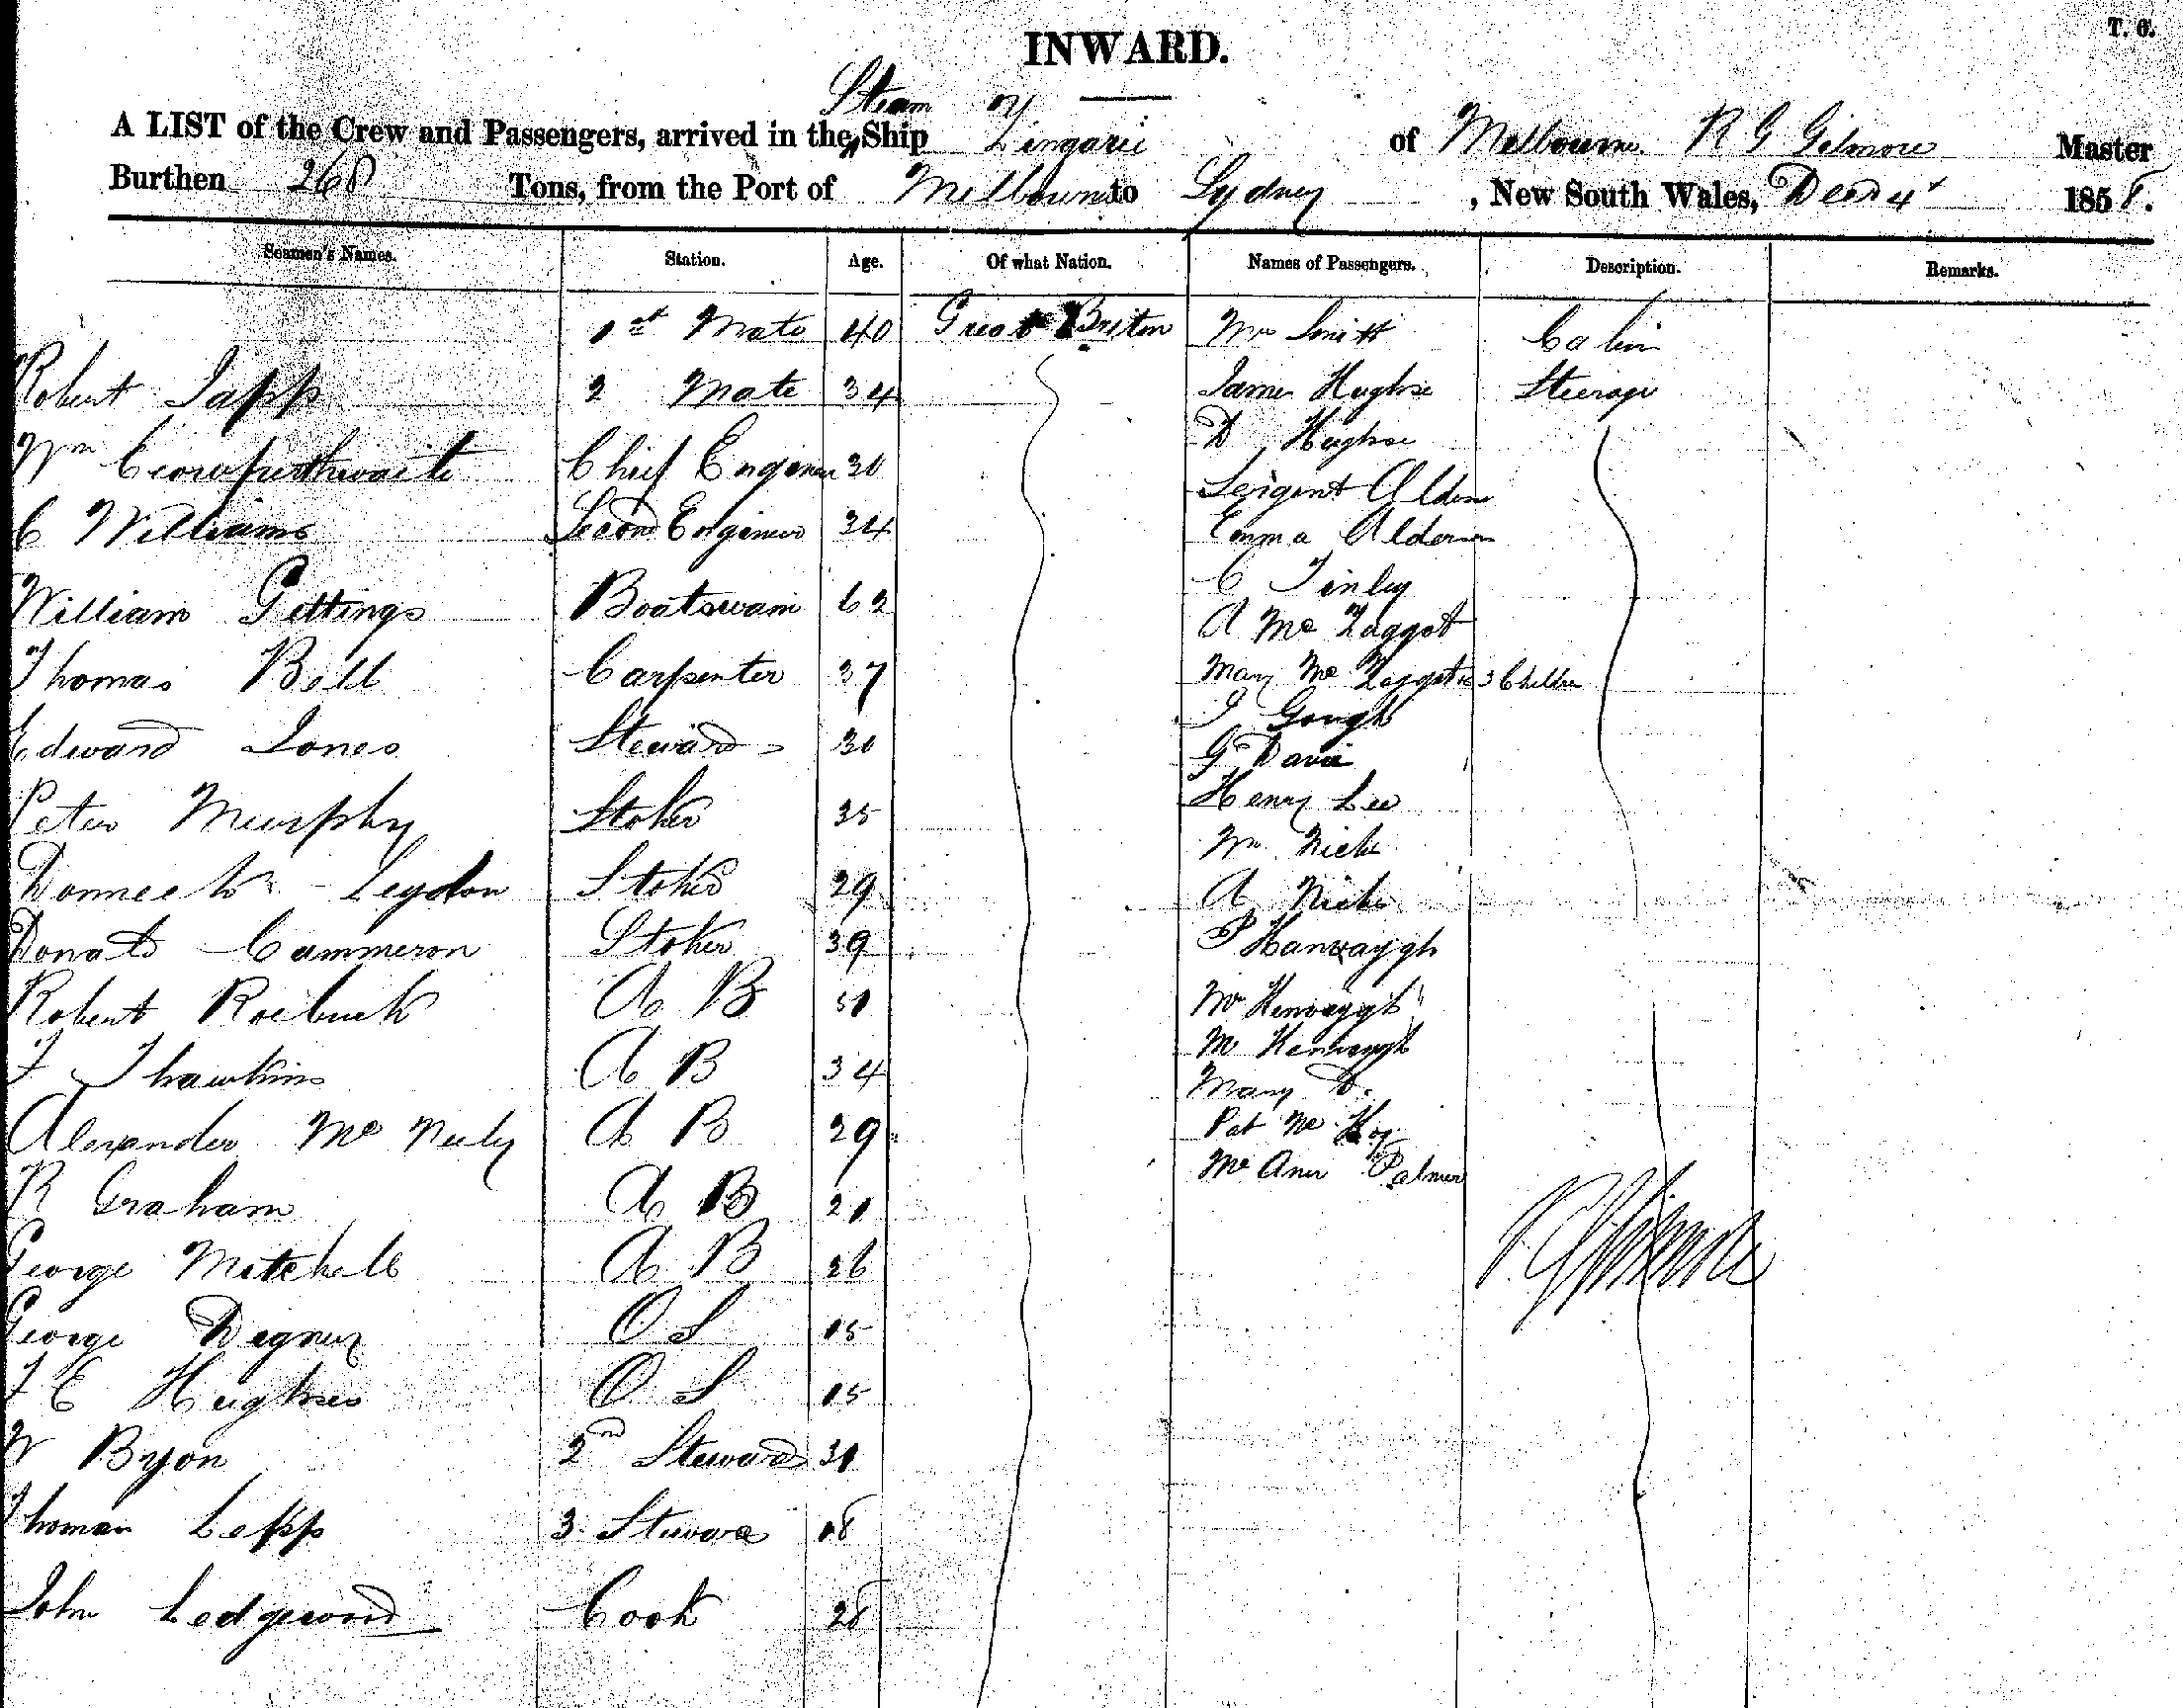 T. G.
INWARD.
Steam
A LIST of the Crew and Passengers, arrived in the Ship Zingarii of Melbourne R G Gilmore Master
Burthen 268 Tons, from the Port of Melbourne to Sydney, New South Wales, Decr 4th 1858.
Seamen's Names. Station. Age. Of what Nation. Names of Passengers. Description. Remarks.
1st Mate 40 Great Briton Mr Smith Cabin
Robert Japp 2 Mate 34 James Hughse Steerage
D Hughse
Wm Cowperthwaite Chief Engineer 30 Sergent Aldern
C Williams Second Engineer 34 Emma Alderman
C Finley
William Gettings Boatswain 62 A Mc Taggot
Thomas Bell Carpenter 37 Mary Mc Taggot & 3 Children
J Gough
Edward Jones Steward 30 G Davis
Henry Lee
Peter Murphy Stoker 35 Wm
Leydon Stoker 29 A
Donald Cammeron Stoker 39 P Kanvaygh
Robert Roebuck A B 51 Kenvaygh
M Kenvaugh
F Thawkins A B 34 Mary Do.
Alexander Mc Neely A B 29 Pat Mc Koy
Palmer
R Graham A B 21
George Mitchell A B 26
George Degney O S 15
F E Hughes O S 15
W Byon 2nd Steward 31
Thomas Lepp 3 Steward 18
John Ledgwood Cook 28